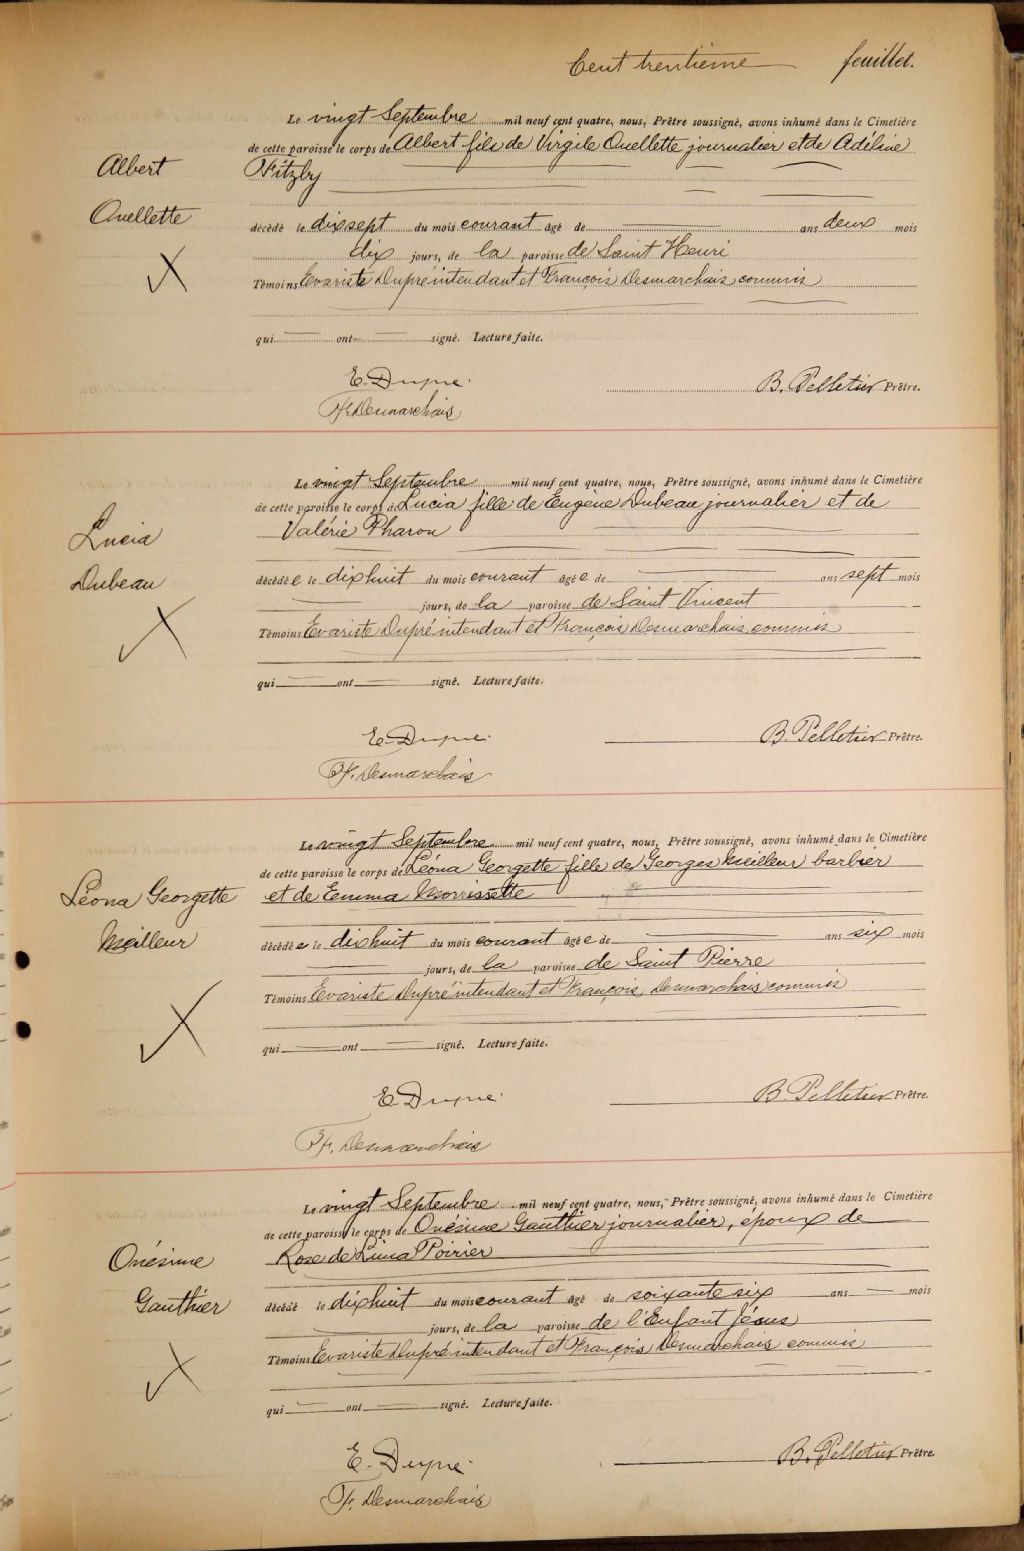 Cent trentième feuillet.
Le vingt Septembre mil neuf cent quatre, nous, Prêtre soussigné, avons inhumé dans le Cimetière
de cette paroisse le corps de Albert fils de Virgile Ouellette journalier et de Adéline
Fitzby
Albert
Ouellette
décédé le dix sept du mois courant âgé de ans deux mois
dix jours, de la paroisse de Saint Henri
Témoins Evariste Dupré intendant et François Desmarchais commis
qui ont signé. Lecture faite.
E. Dupré
B. Pelletier Prêtre.
F. Desmarchais
Le vingt Septembre mil neuf cent quatre, nous, Prêtre soussigné, avons inhumé dans le Cimetière
de cette paroisse le corps de Lucia fille de Eugène Dubeau journalier et de
Valérie Pharon
Lucia
Dubeau
décédée le dix huit du mois courant âgée de ans sept mois
jours, de la paroisse de Saint Vincent
Témoins Evariste Dupré intendant et François Desmarchais commis
qui ont signé. Lecture faite.
E. Dupré
B. Pelletier Prêtre.
F. Desmarchais
Le vingt Septembre mil neuf cent quatre, nous, Prêtre soussigné, avons inhumé dans le Cimetière
de cette paroisse le corps de Léona Georgette fille de Georges Meilleur barbier
et de Emma Morrissette
Léona Georgette
Meilleur
décédée le dix huit du mois courant âgée de ans six mois
jours, de la paroisse de Saint Pierre
Témoins Evariste Dupré intendant et François Desmarchais commis
qui ont signé. Lecture faite.
E. Dupré
B. Pelletier Prêtre.
F. Desmarchais
Le vingt Septembre mil neuf cent quatre, nous, Prêtre soussigné, avons inhumé dans le Cimetière
de cette paroisse le corps de Onésime Gauthier journalier, époux de
Rose de Lima Poirier
Onésime
Gauthier
décédé le dix huit du mois courant âgé de soixante six ans mois
jours, de la paroisse de l'Enfant Jésus
Témoins Evariste Dupré intendant et François Desmarchais commis
qui ont signé. Lecture faite.
E. Dupré
B. Pelletier Prêtre.
F. Desmarchais